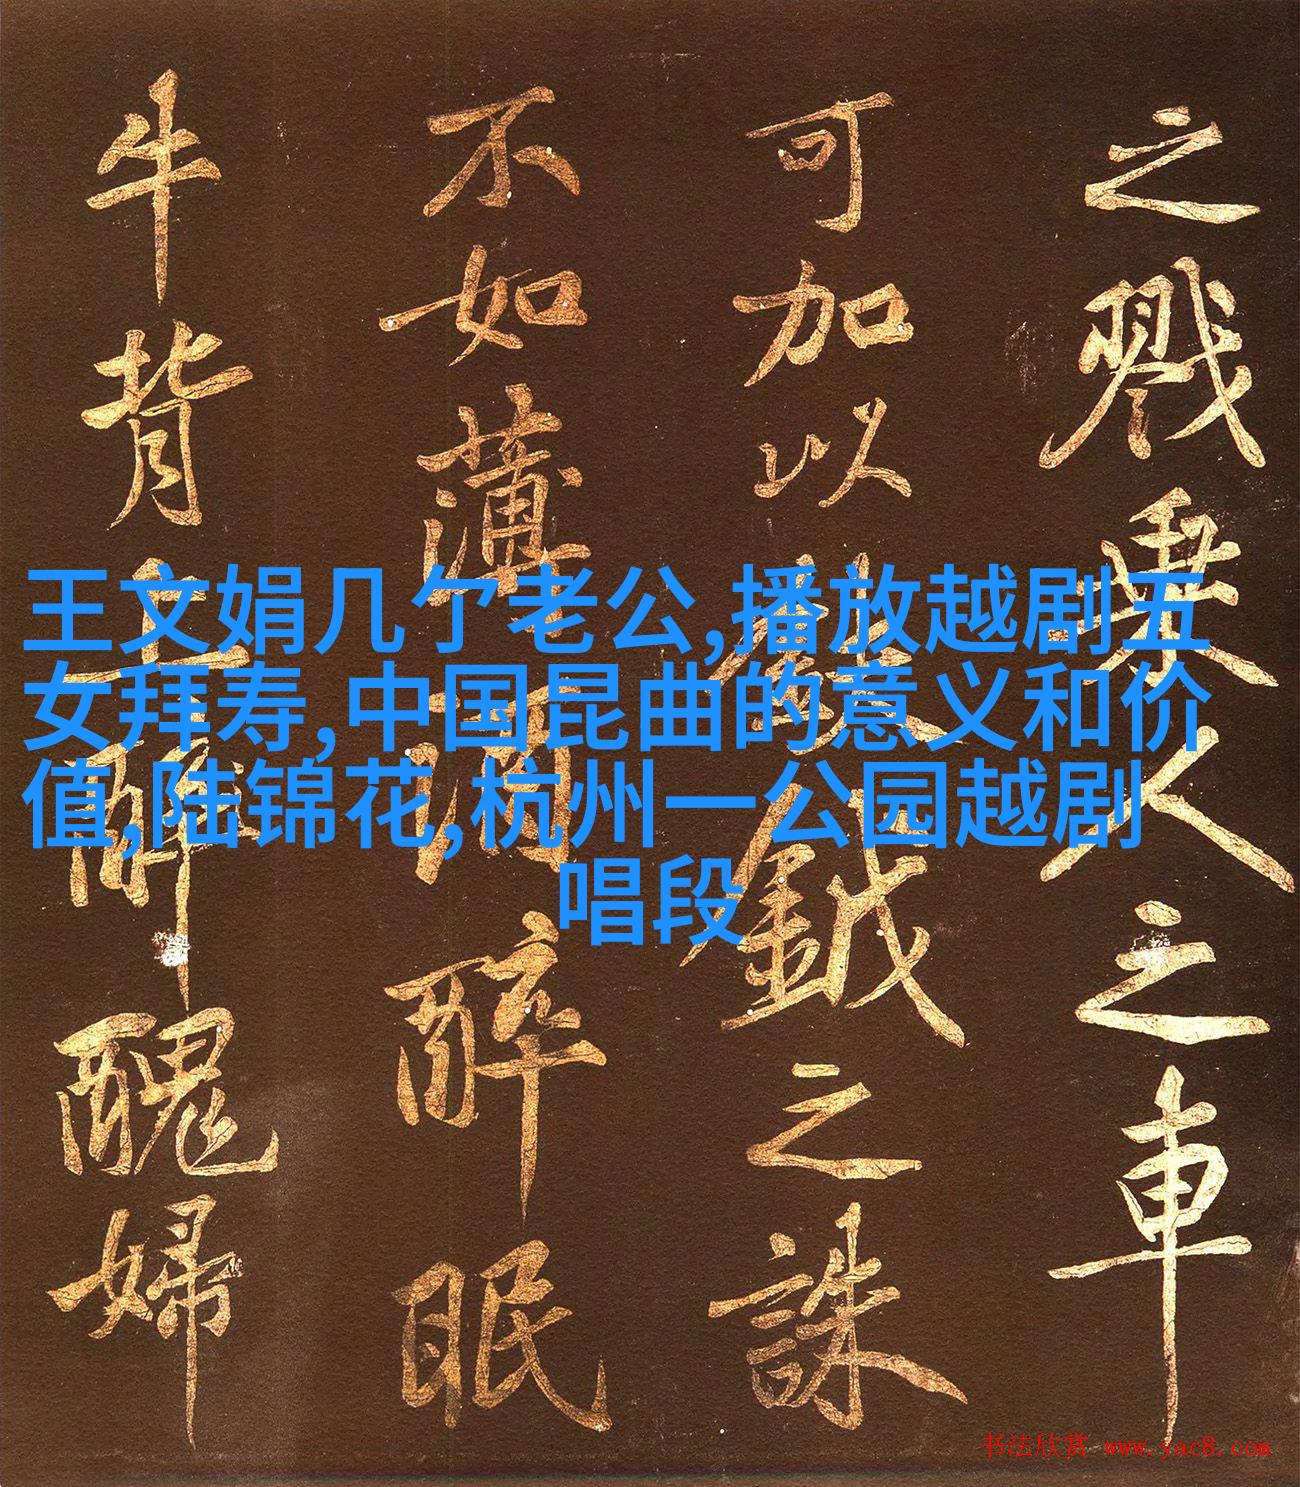 之戮乘人之車
可加以鉞之誅
不如薄酒醉眠
牛背上醜婦
王文娟几亇老公,播放越剧五
女拜寿,中国昆曲的意义和价
值,陆锦花,杭州一公园越剧
唱段
书法欣赏 www.yac8.com